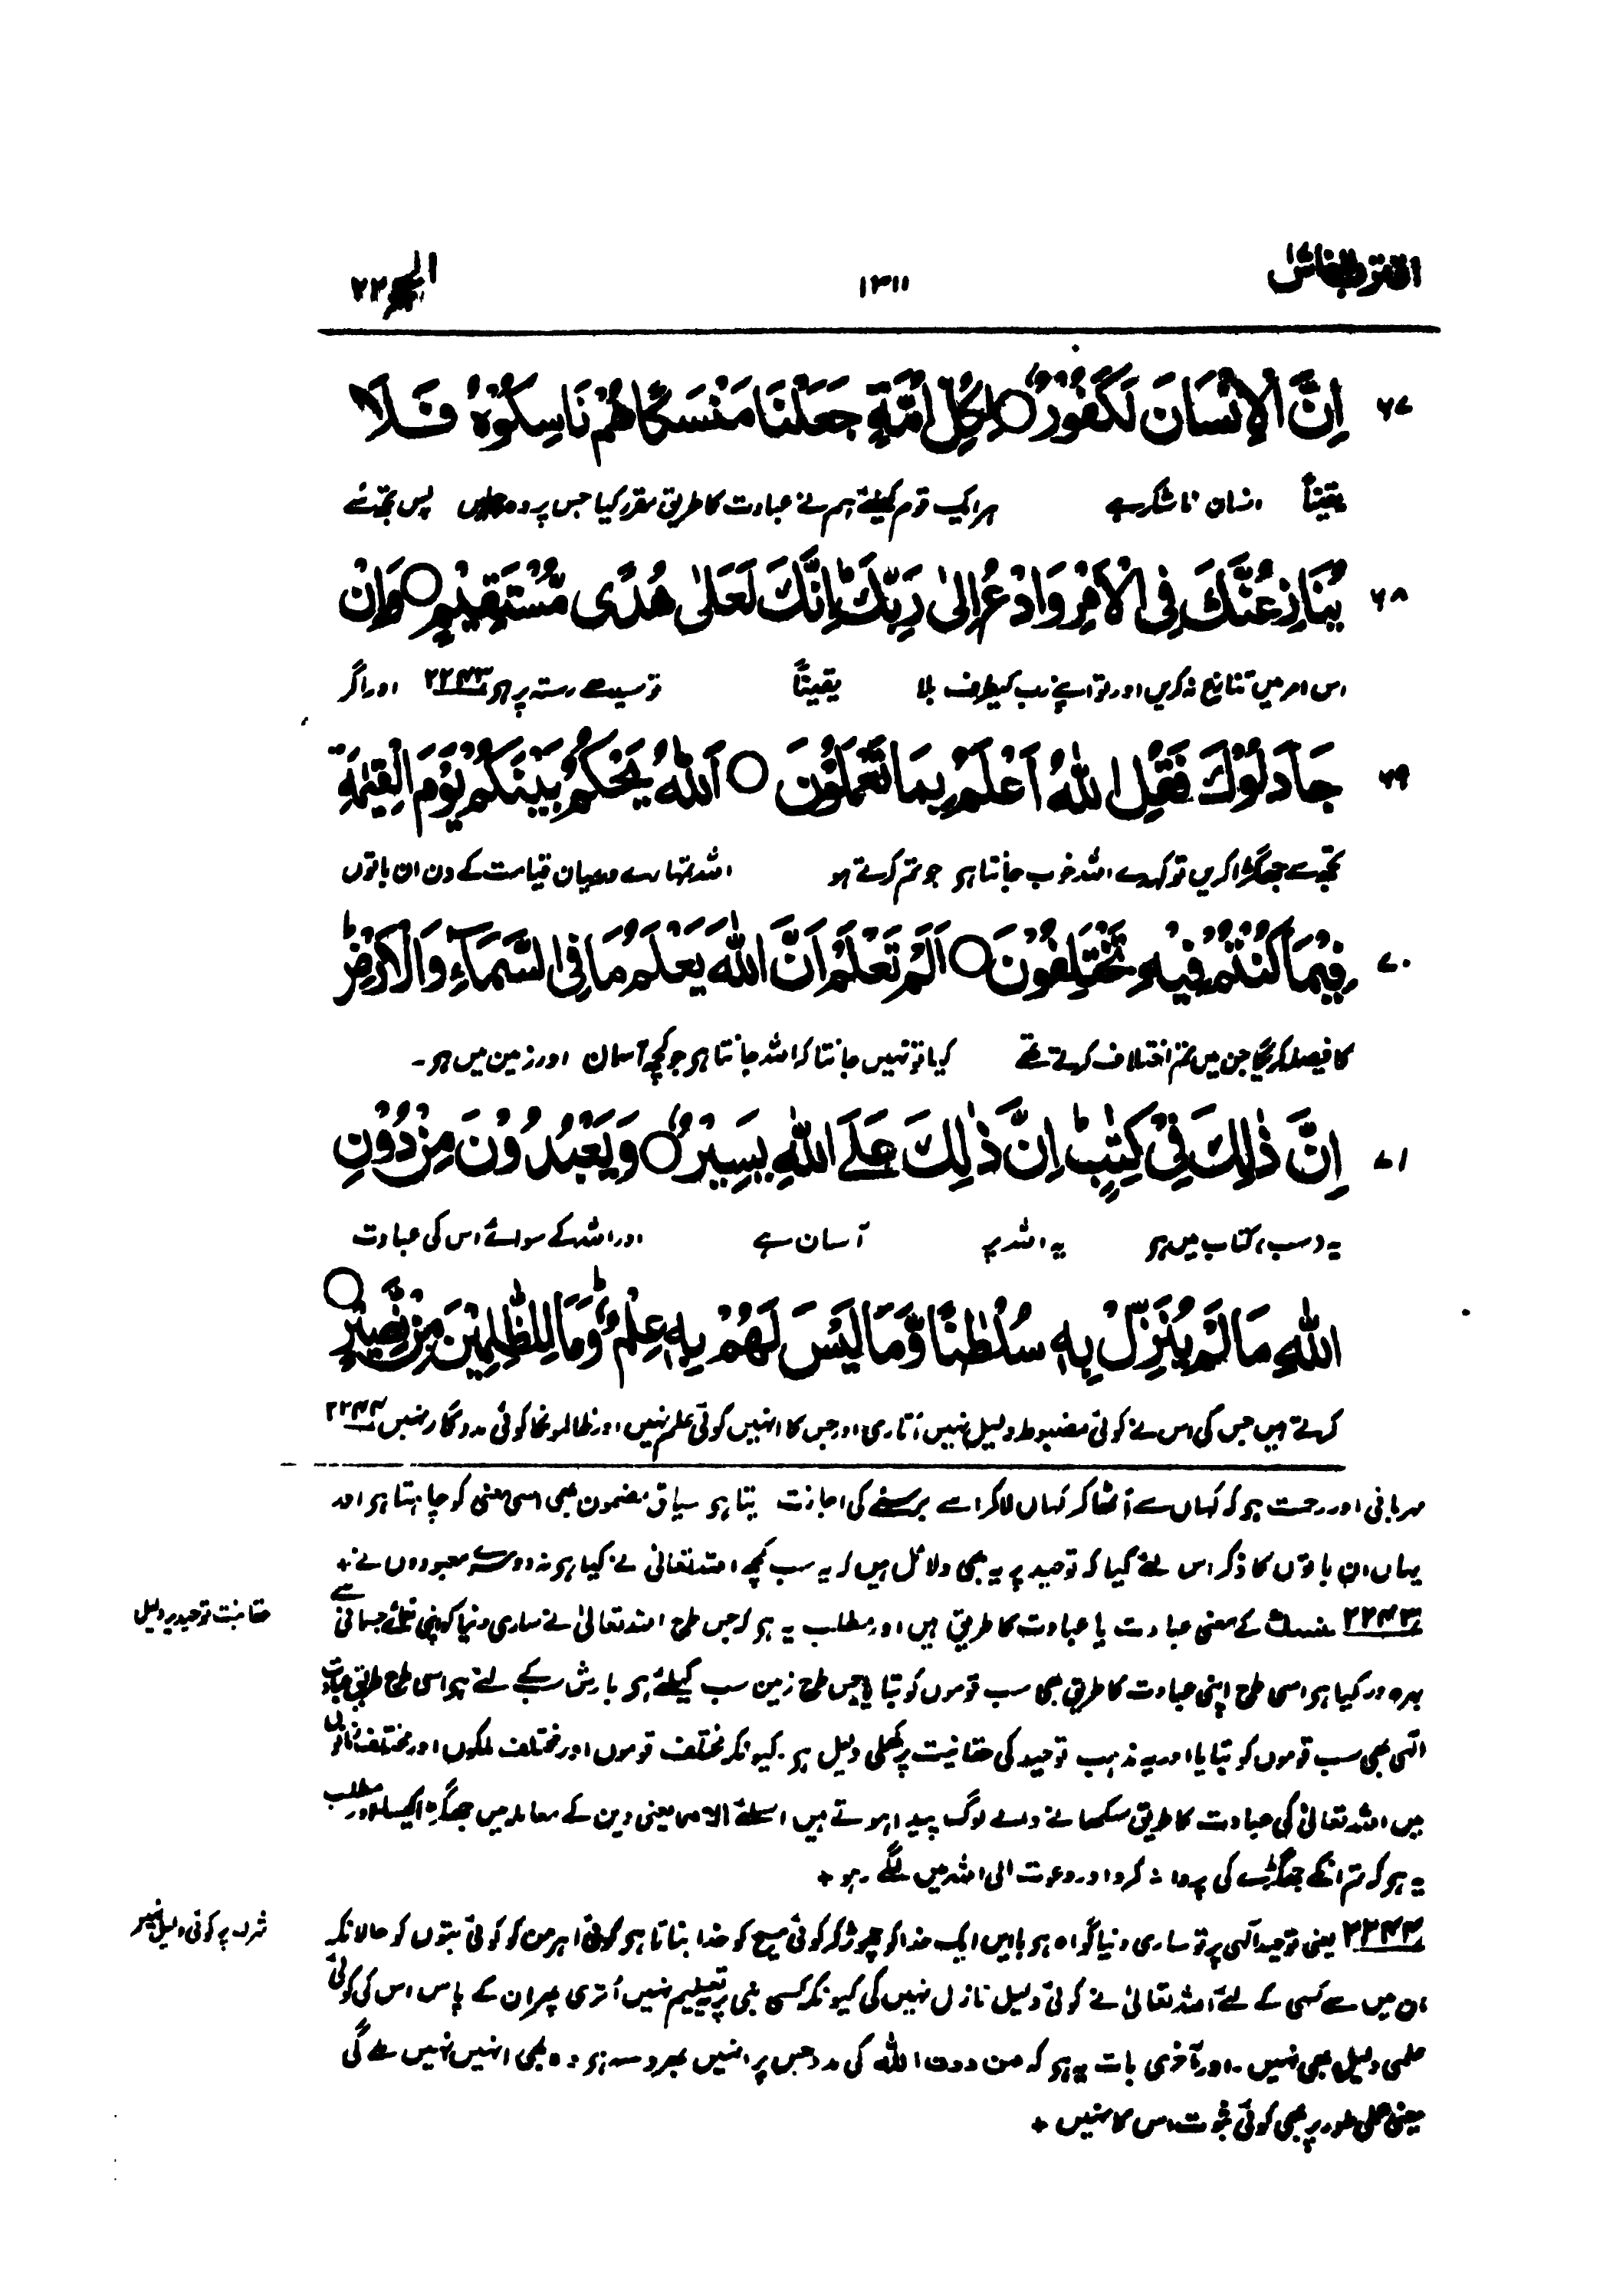 اقترب للناس ۱۷
۱۳۱۱
الحج ۲۲
۶۷ اِنَّ الْاِنْسَانَ لَكَفُوْرٌ ○ لِكُلِّ اُمَّةٍ جَعَلْنَا مَنْسَكًا هُمْ نَاسِكُوْهُ فَلَا
یقیناً انسان ناشکر ہے ہر ایک قوم کیلئے ہم نے عبادت کا طریق مقرر کیا جس پر وہ چلیں پس تجھ سے
۶۸ يُنَازِعُنَّكَ فِي الْاَمْرِ وَادْعُ اِلٰى رَبِّكَ ؕ اِنَّكَ لَعَلٰى هُدًى مُّسْتَقِيْمٍ ○ وَاِنْ
اس امر میں تنازع نہ کریں اور تو اپنے رب کیطرف بلا یقیناً تو سیدھے رستہ پر ہو ۲۲۴۳ اور اگر
۶۹ جَادَلُوْكَ فَقُلِ اللّٰهُ اَعْلَمُ بِمَا تَعْمَلُوْنَ ○ اَللّٰهُ يَحْكُمُ بَيْنَكُمْ يَوْمَ الْقِيٰمَةِ
تجھ سے جھگڑا کریں تو کہدے اللہ خوب جانتا ہو جو تم کرتے ہو اللہ تمہارے درمیان قیامت کے دن ان باتوں
۷۰ فِيْمَا كُنْتُمْ فِيْهِ تَخْتَلِفُوْنَ ○ اَلَمْ تَعْلَمْ اَنَّ اللّٰهَ يَعْلَمُ مَا فِي السَّمَآءِ وَالْاَرْضِ ؕ
کا فیصلہ کریگا جن میں تم اختلاف کرتے تھے کیا تو نہیں جانتا کہ اللہ جانتا ہو جو کچھ آسمان اور زمین میں ہو۔
۷۱ اِنَّ ذٰلِكَ فِيْ كِتٰبٍ ؕ اِنَّ ذٰلِكَ عَلَى اللّٰهِ يَسِيْرٌ ○ وَيَعْبُدُوْنَ مِنْ دُوْنِ
یہ (سب) کتاب میں ہو یہ اللہ پر آسان ہے اور اللہ کے سوائے اس کی عبادت
اللّٰهِ مَا لَمْ يُنَزِّلْ بِهٖ سُلْطٰنًا وَّمَا لَيْسَ لَهُمْ بِهٖ عِلْمٌ ؕ وَمَا لِلظّٰلِمِيْنَ مِنْ نَّصِيْرٍ ○
کرتے ہیں جس کی اس نے کوئی مضبوط دلیل نہیں اُتاری اور جس کا انہیں کوئی علم نہیں اور ظالمونکا کوئی مددگار نہیں ۲۲۴۴
مہربانی اور رحمت ہو کہ کہاں سے اُٹھا کر کہاں لا کر اسے برسنے کی اجازت دیتا ہو سیاق مضمون بھی اسی معنی کو چاہتا ہو اور
یہاں ان باتوں کا ذکر اس لئے کیا کہ توحید پر یہ بھی دلائل ہیں کہ یہ سب کچھ اللہ تعالیٰ نے کیا ہو نہ دوسرے معبودوں نے +
۲۲۴۳ منسك کے معنی عبادت یا عبادت کا طریق ہیں اور مطلب یہ ہو کہ جس طرح اللہ تعالیٰ نے ساری دنیا کو اپنی نعمائے جسمانی سے
حقانیت توحید پر دلیل
بہرہ ور کیا ہو اسی طرح اپنی عبادت کا طریق بھی سب قوموں کو بتایا جس طرح زمین سب کیلئے ہو بارش سب کے لئے ہو اسی طرح طریق عبادت
الٰہی بھی سب قوموں کو بتایا اور یہ مذہب توحید کی حقانیت پر کھلی دلیل ہو۔ کیونکہ مختلف قوموں اور مختلف ملکوں اور مختلف زمانوں
میں اللہ تعالیٰ کی عبادت کا طریق سکھانے والے لوگ پیدا ہوتے ہیں اسلئے الامر یعنی دین کے معاملہ میں جھگڑا کیسا اور مطلب
یہ ہو کہ تم انکے جھگڑے کی پروا نہ کرو اور دعوت الی اللہ میں لگے رہو +
۲۲۴۴ یعنی توحید الٰہی پر تو ساری دنیا گواہ ہو باہیں ایک خدا کو چھوڑ کر کوئی مسیح کو خدا بناتا ہو کوئی اہرمن کو کوئی بتوں کو حالانکہ
شرک پر کوئی دلیل نہیں
ان میں سے کسی کے لئے اللہ تعالیٰ نے کوئی دلیل نازل نہیں کی کیونکہ کسی نبی پر یہ تعلیم نہیں اُتری پھر ان کے پاس اس کی کوئی
علمی دلیل بھی نہیں۔ اور آخری بات یہ ہو کہ من دون الله کی مدد جس پر انہیں بھروسہ ہو وہ بھی انہیں نہیں ملے گی
یعنی عملی طور پر بھی کوئی ثبوت اس کا نہیں +